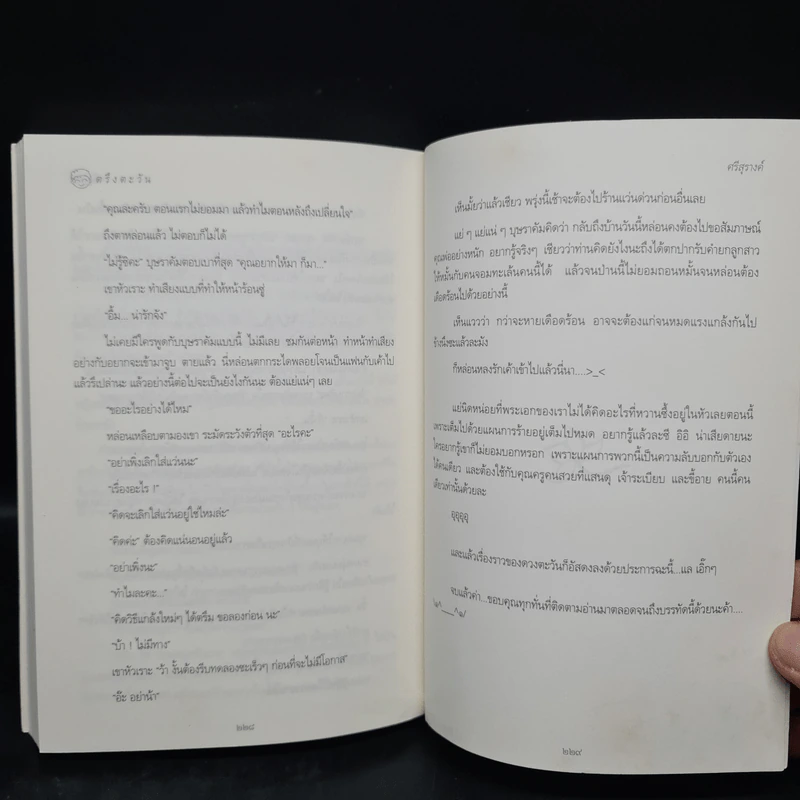 ตรึงตะวัน
"คุณล่ะครับ ตอนแรกไม่ยอมมา แล้วทำไมตอนหลังถึงเปลี่ยนใจ"
ถึงตาหล่อนแล้ว ไม่ตอบก็ไม่ได้
"ไม่รู้ซิคะ" บุษราคัมตอบเบาที่สุด "คุณอยากให้มา ก็มา..."
เขาหัวเราะ ทำเสียงแบบที่ทำให้หน้าร้อนซู่
"อื้ม... น่ารักจัง"
ไม่เคยมีใครพูดกับบุษราคัมแบบนี้ ไม่มีเลย ชมกันต่อหน้า ทำหน้าทำเสียง
อย่างกับอยากจะเข้ามาจูบ ตายแล้ว นี่หล่อนตกกระไดพลอยโจนเป็นแฟนกับเค้าไป
แล้วรึเปล่านะ แล้วอย่างนี้ต่อไปจะเป็นยังไงกันนะ ต้องแย่แน่ๆ เลย
"ขออะไรอย่างได้ไหม"
หล่อนเหลือบตามองเขา ระมัดระวังตัวที่สุด "อะไรคะ"
"อย่าเพิ่งเลิกใส่แว่นนะ"
"เรื่องอะไร !"
"คิดจะเลิกใส่แว่นอยู่ใช่ไหมล่ะ"
"คิดค่ะ" ต้องคิดแน่นอนอยู่แล้ว
"อย่าเพิ่งนะ"
"ทำไมละคะ..."
"คิดวิธีแกล้งใหม่ๆ ได้ตรึม ขอลองก่อน นะ"
"บ้า ! ไม่มีทาง"
เขาหัวเราะ "ว้า งั้นต้องรีบทดลองซะเร็วๆ ก่อนที่จะไม่มีโอกาส"
"อ๊ะ อย่าน้า"
๒๒๘
ศรีสุรางค์
เห็นมั้ยว่าแล้วเชียว พรุ่งนี้เช้าจะต้องไปร้านแว่นด่วนก่อนอื่นเลย
แย่ ๆ แย่แน่ ๆ บุษราคัมคิดว่า กลับถึงบ้านวันนี้หล่อนคงต้องไปขอสัมภาษณ์
คุณพ่ออย่างหนัก อยากรู้จริงๆ เชียวว่าท่านคิดยังไงนะถึงได้ตกปากรับคำยกลูกสาว
ให้หมั้นกับคนจอมทะเล้นคนนี้ได้ แล้วจนป่านนี้ไม่ยอมถอนหมั้นจนหล่อนต้อง
เดือดร้อนไปด้วยอย่างนี้
เห็นแววว่า กว่าจะหายเดือดร้อน อาจจะต้องแก่จนหมดแรงแกล้งกันไป
ข้างนึงซะแล้วละมัง
ก็หล่อนหลงรักเค้าเข้าไปแล้วนี่นา....>_<
แย่นิดหน่อยที่พระเอกของเราไม่ได้คิดอะไรที่หวานซึ้งอยู่ในหัวเลยตอนนี้
เพราะเต็มไปด้วยแผนการร้ายอยู่เต็มไปหมด อยากรู้แล้วละซี อิอิ น่าเสียดายนะ
ใครอยากรู้เขาก็ไม่ยอมบอกหรอก เพราะแผนการพวกนี้เป็นความลับบอกกับตัวเอง
ได้คนเดียว และต้องใช้กับคุณครูคนสวยที่แสนดุ เจ้าระเบียบ และขี้อาย คนนี้คน
เดียวเท่านั้นด้วยละ
อุอุอุอุ
และแล้วเรื่องราวของดวงตะวันก็อัสดงลงด้วยประการฉะนี้...แล เอิ๊กๆ
จบแล้วค่า...ขอบคุณทุกท่านที่ติดตามอ่านมาตลอดจนถึงบรรทัดนี้ด้วยนะค้า....
๒๒๙